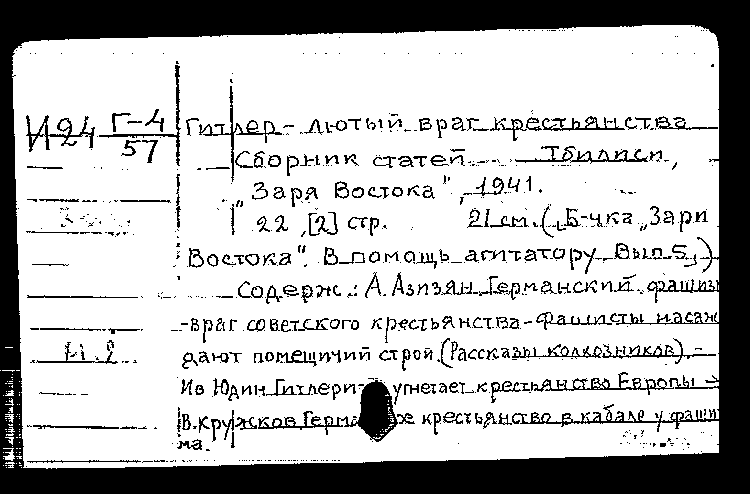 И24 Г-4
57
Гитлер - лютый враг крестьянства
Сборник статей Тбилиси,
"Заря Востока", 1941.
22, [2] стр. 21 см. („Б-чка „Зари
Востока". В помощь агитатору. Вып. 5,)
Содерж.: А. Азизян. Германский фашизм
-враг советского крестьянства - Фашисты насаж
дают помещичий строй. (Рассказы колхозников) -
Ив Юдин Гитлери угнетает крестьянство Европы -
В. Кружков Герма е крестьянство в кабале у фашиз
ма.